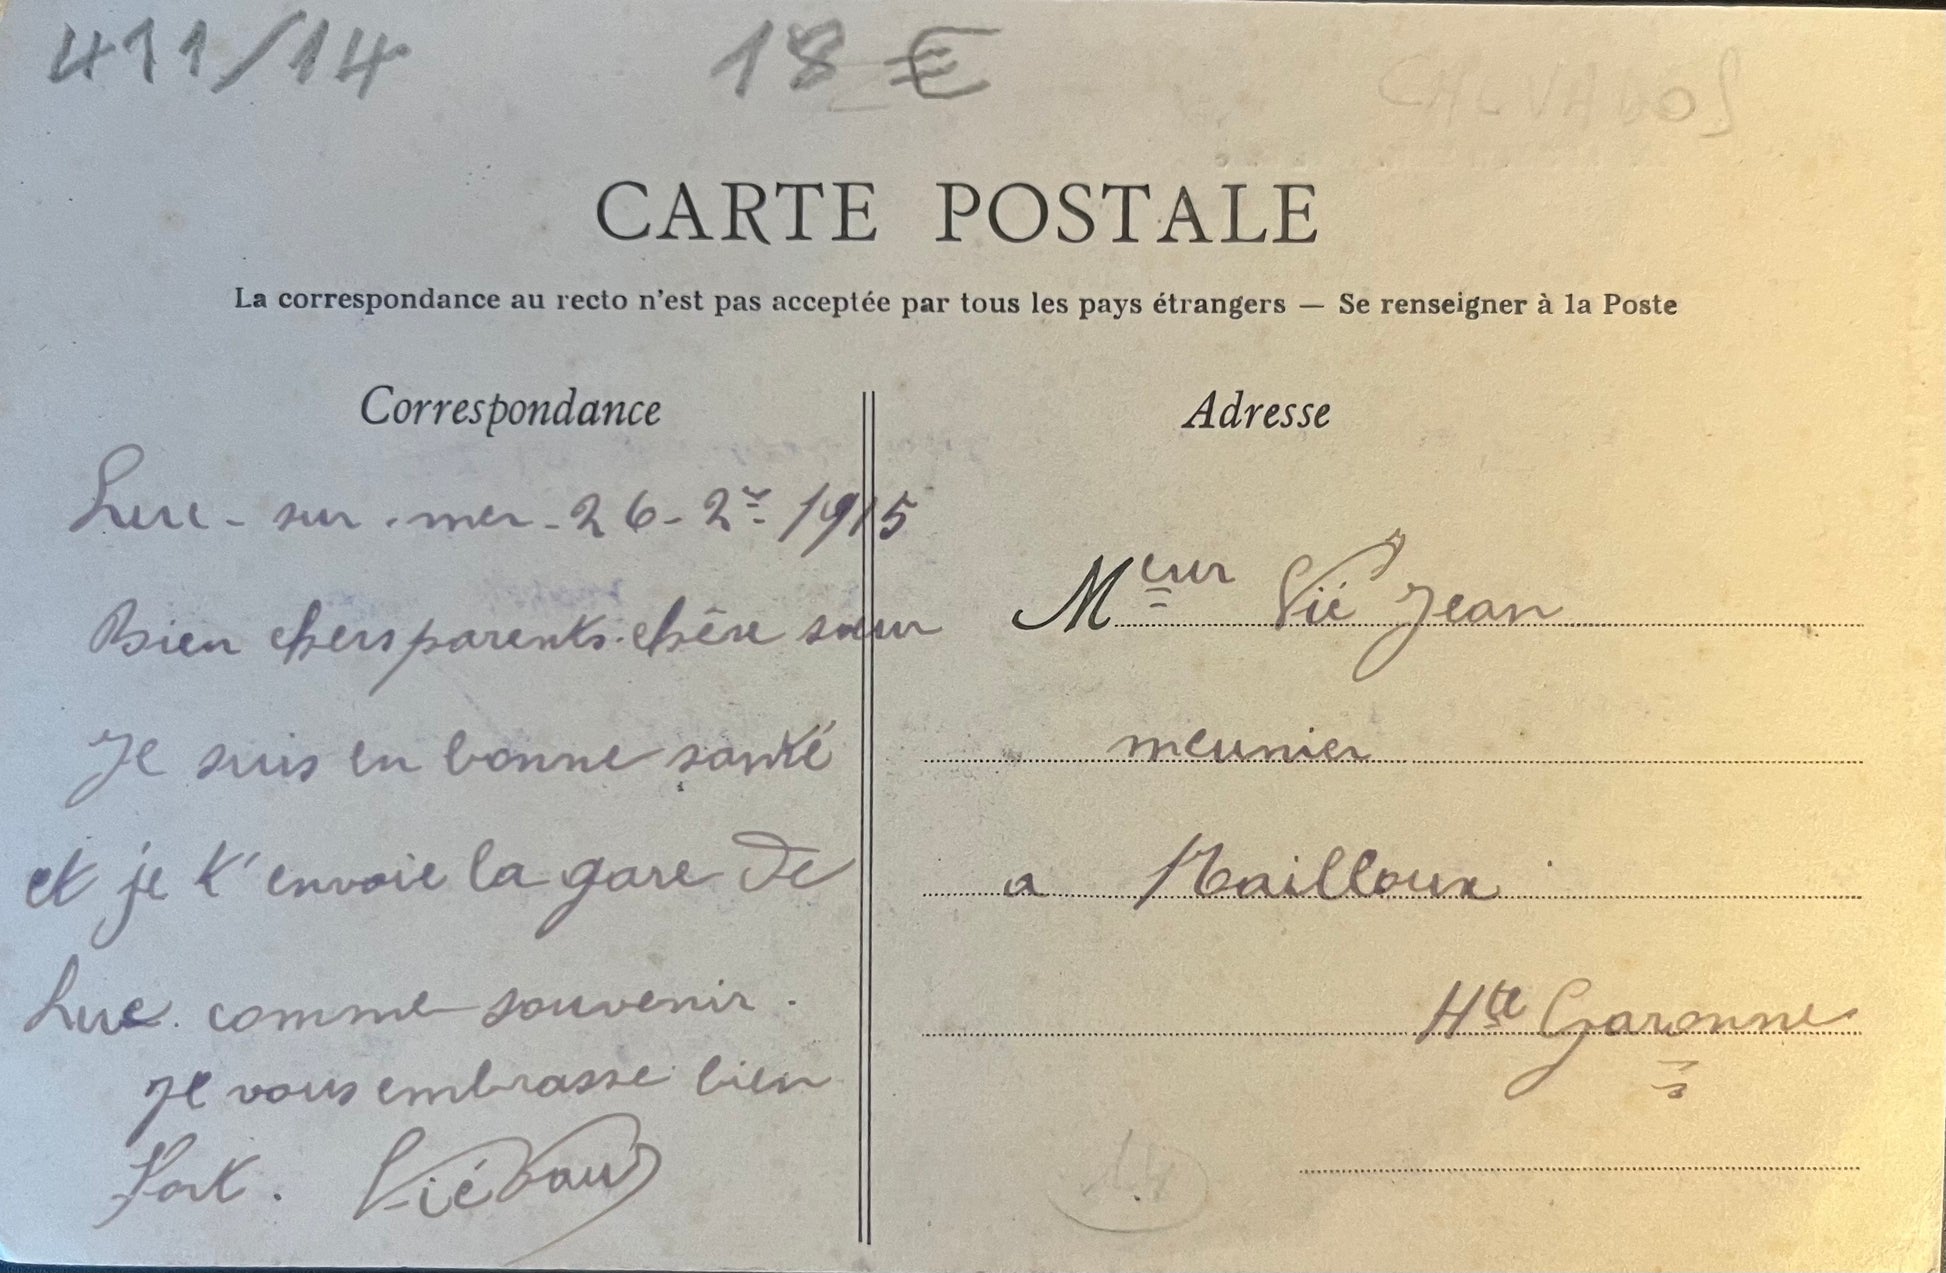 411/14
18 €
CALVADOS
CARTE POSTALE
La correspondance au recto n'est pas acceptée par tous les pays étrangers — Se renseigner à la Poste
Correspondance
Luc - sur - mer - 26 - 2r 1915
Bien chers parents. chère sœur
Je suis en bonne santé
et je t'envoie la gare de
Luc. comme souvenir.
Je vous embrasse bien
fort. Vié
Adresse
Meur Vié Jean
meunier
a Nailloux
Hte Garonne
14